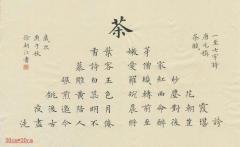 一至七字詩
唐 元稹
茶
香葉
嫩芽
慕詩客
愛僧家
碾雕白玉
羅織紅紗
銚煎黃蕊色
碗轉麯塵花
夜後邀陪明月
晨前命對朝霞
洗盡古今人不倦
將至醉後豈堪誇
歲次
庚子秋
30cm*20cm